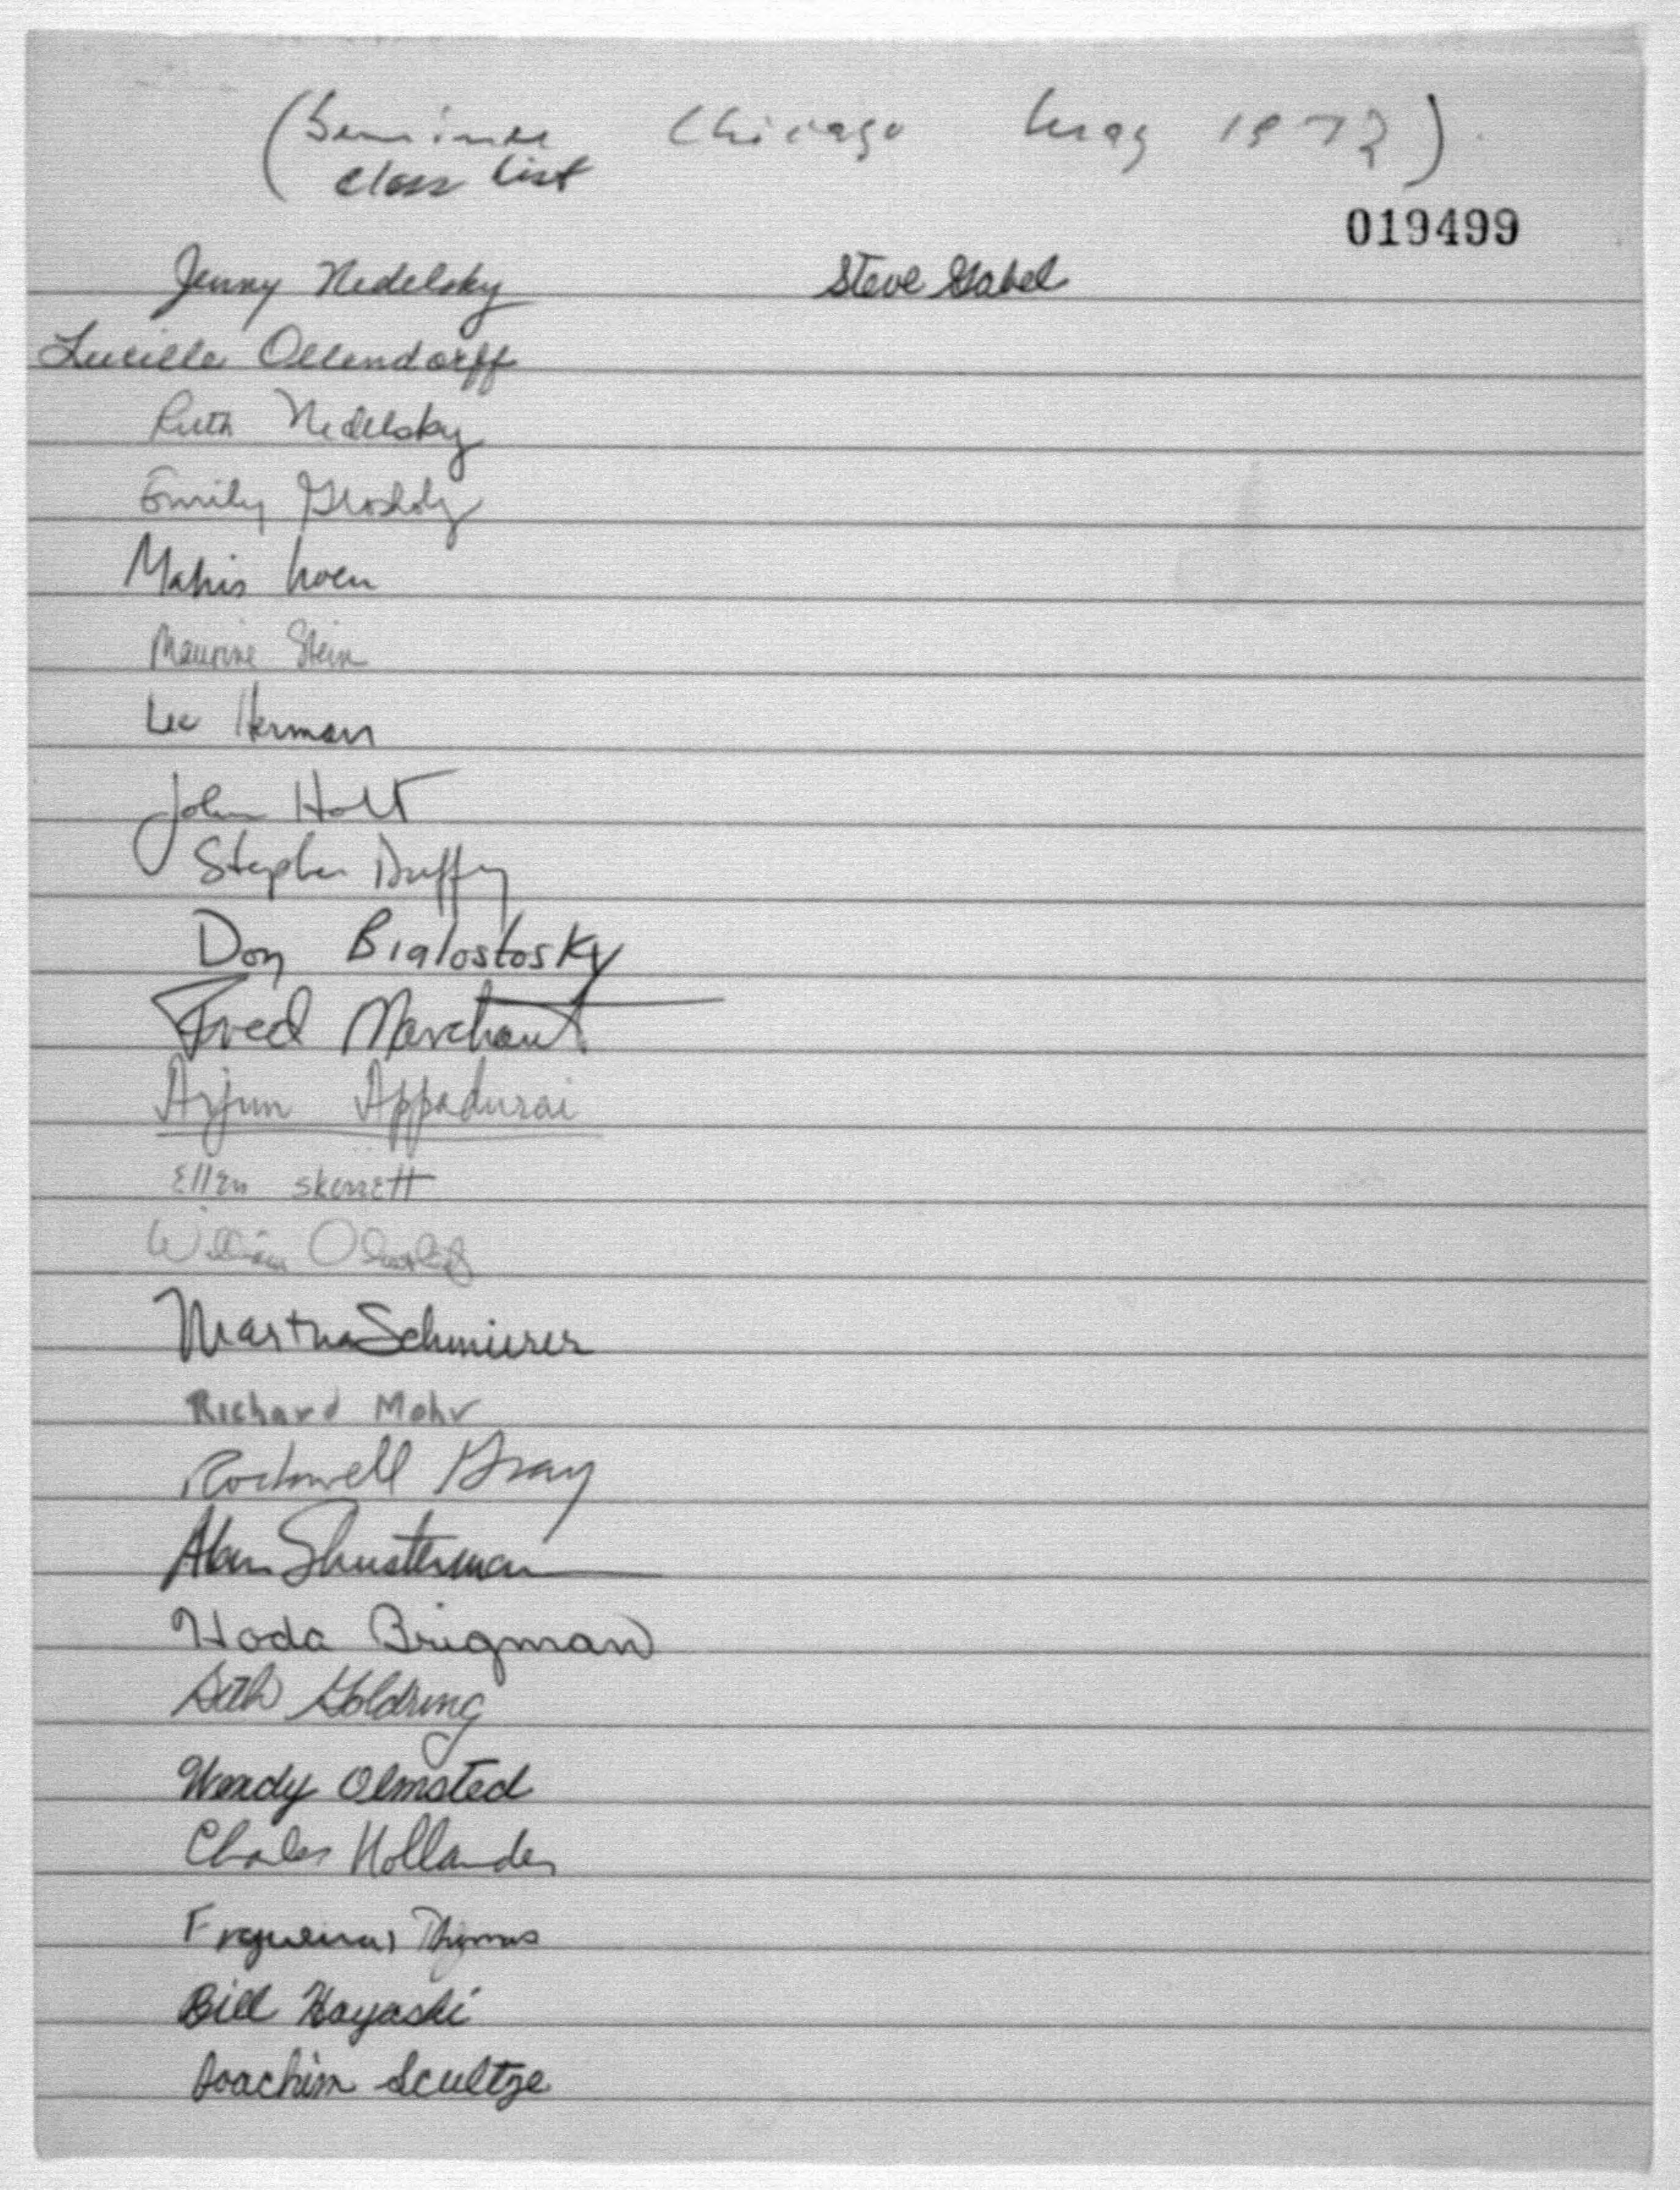 (Seminar Chicago May 1972)
class list
019499
Jenny Nedelsky Steve Gabel
Lucille Ollendorff
Ruth Nedelsky
Emily Grosholz
Stein
Lee Herman
John Holt
Stephen Duffy
Don Bialostosky
Fred Marchant
Arjun Appadurai
Ellen Skerrett
William
Martha Schmierer
Richard Mohr
Rockwell Gray
Alan Shusterman
Hoda Brigman
Beth Goldring
Wendy Olmsted
Charles Hollander
Thomas
Bill Hayashi
Joachim Scultze